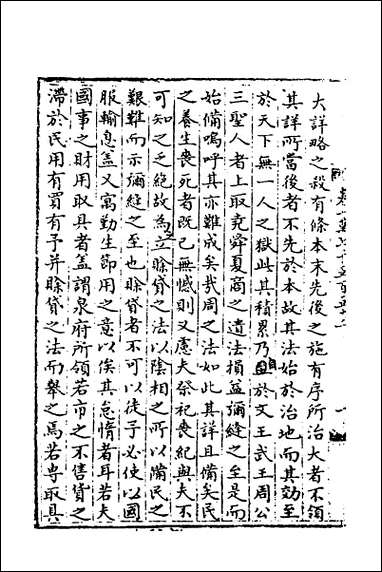 大詳略之殺有條本末先後之施有序所治大者不領
其詳所當後者不先於本故其法始於治地而其効至
於天下無一人之獄此其積累乃自於文王武王周公
三聖人者上取堯舜夏商之遺法損益彌縫之至是而
始備嗚呼其亦難成矣哉周之法如此其詳且備矣民
之養生喪死者既已無憾則又慮夫祭祀喪紀與夫不
可知之乏絕故為立賒貸之法以陰相之所以備民之
艱難而示彌縫之至也賒貸者不可以徒予必使以國
服輸息盖又寓勤生節用之意以俟其怠惰者耳若夫
國事之財用取具者盖謂泉府所領若市之不售貨之
滯於民用有買有予并賒貸之法而舉之焉若専取具